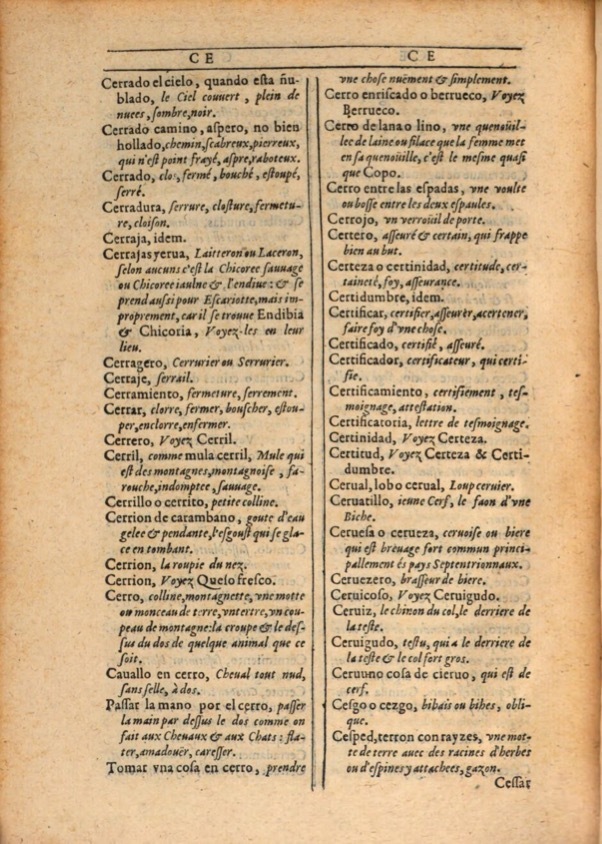 CE
Cerrado el cielo, quando esta ñu-
blado, le Ciel couuert, plein de
nuees, sombre, noir.
Cerrado camino, aspero, no bien
hollado, chemin, scabreux, pierreux,
qui n'est point frayé, aspre, raboteux.
Cerrado, clos, fermé, bouché, estoupé,
serré.
Cerradura, serrure, closture, fermetu-
re, cloison.
Cerraja, idem.
Cerrajas yerua, Laitteron ou Laceron,
selon aucuns c'est la Chicoree sauuage
ou Chicoree iaulne & l'endiue: & se
prend aussi pour Escariotte, mais im-
proprement, car il se trouue Endibia
& Chicoria, Voyez-les en leur
lieu.
Cerragero, Cerrurier ou Serrurier.
Cerraje, serrail.
Cerramiento, fermeture, serrement.
Cerrar, clorre, fermer, bouscher, estou-
per, enclorre, enfermer.
Cerrero, Voyez Cerril.
Cerril, comme mula cerril, Mule qui
est des montagnes, montagnoise, fa-
rouche, indomptee, sauuage.
Cerrillo o cerrito, petite colline.
Cerrion de carambano, goute d'eau
gelee & pendante, l'esgoust qui se gla-
ce en tombant.
Cerrion, la roupie du nez.
Cerrion, Voyez Queso fresco.
Cerro, colline, montagnette, vne motte
ou monceau de terre, vn tertre, vn cou-
peau de montagne: la croupe & le des-
sus du dos de quelque animal que ce
soit.
Cauallo en cerro, Cheual tout nud,
sans selle, à dos.
Passar la mano por el cerro, passer
la main par dessus le dos comme on
fait aux Cheuaux & aux Chats: fla-
ter, amadouër, caresser.
Tomar vna cosa en cerro, prendre
CE
vne chose nuëment & simplement.
Cerro enriscado o berrueco, Voyez
Berrueco.
Cerro de lana o lino, vne quenoüil-
lee de laine ou filace que la femme met
en sa quenoüille, c'est le mesme quasi
que Copo.
Cerro entre las espadas, vne voulte
ou bosse entre les deux espaules.
Cerrojo, vn verroüil de porte.
Certero, asseuré & certain, qui frappe
bien au but.
Certeza o certinidad, certitude, cer-
taineté, foy, asseurance.
Certidumbre, idem.
Certificar, certifier, asseurèr, acertener,
faire foy d'vne chose.
Certificado, certifié, asseuré.
Certificador, certificateur, qui certi-
fie.
Certificamiento, certifiement, tes-
moignage, attestation.
Certificatoria, lettre de tesmoignage.
Certinidad, Voyez Certeza.
Certitud, Voyez Certeza & Certi-
dumbre.
Cerual, lobo cerual, Loup ceruier.
Ceruatillo, ieune Cerf, le faon d'vne
Biche.
Ceruesa o cerueza, ceruoise ou biere
qui est breuage fort commun princi-
pallement és pays Septentrionnaux.
Ceruezero, brasseur de biere.
Ceruicoso, Voyez Ceruigudo.
Ceruiz, le chinon du col, le derriere de
la teste.
Ceruigudo, testu, qui a le derriere de
la teste & le col fort gros.
Ceruuno cosa de cieruo, qui est de
cerf.
Cesgo o cezgo, bibais ou bihes, obli-
que.
Cesped, terron con rayzes, vne mot-
te de terre auec des racines d'herbes
ou d'espines y attachees, gazon.
Cessar